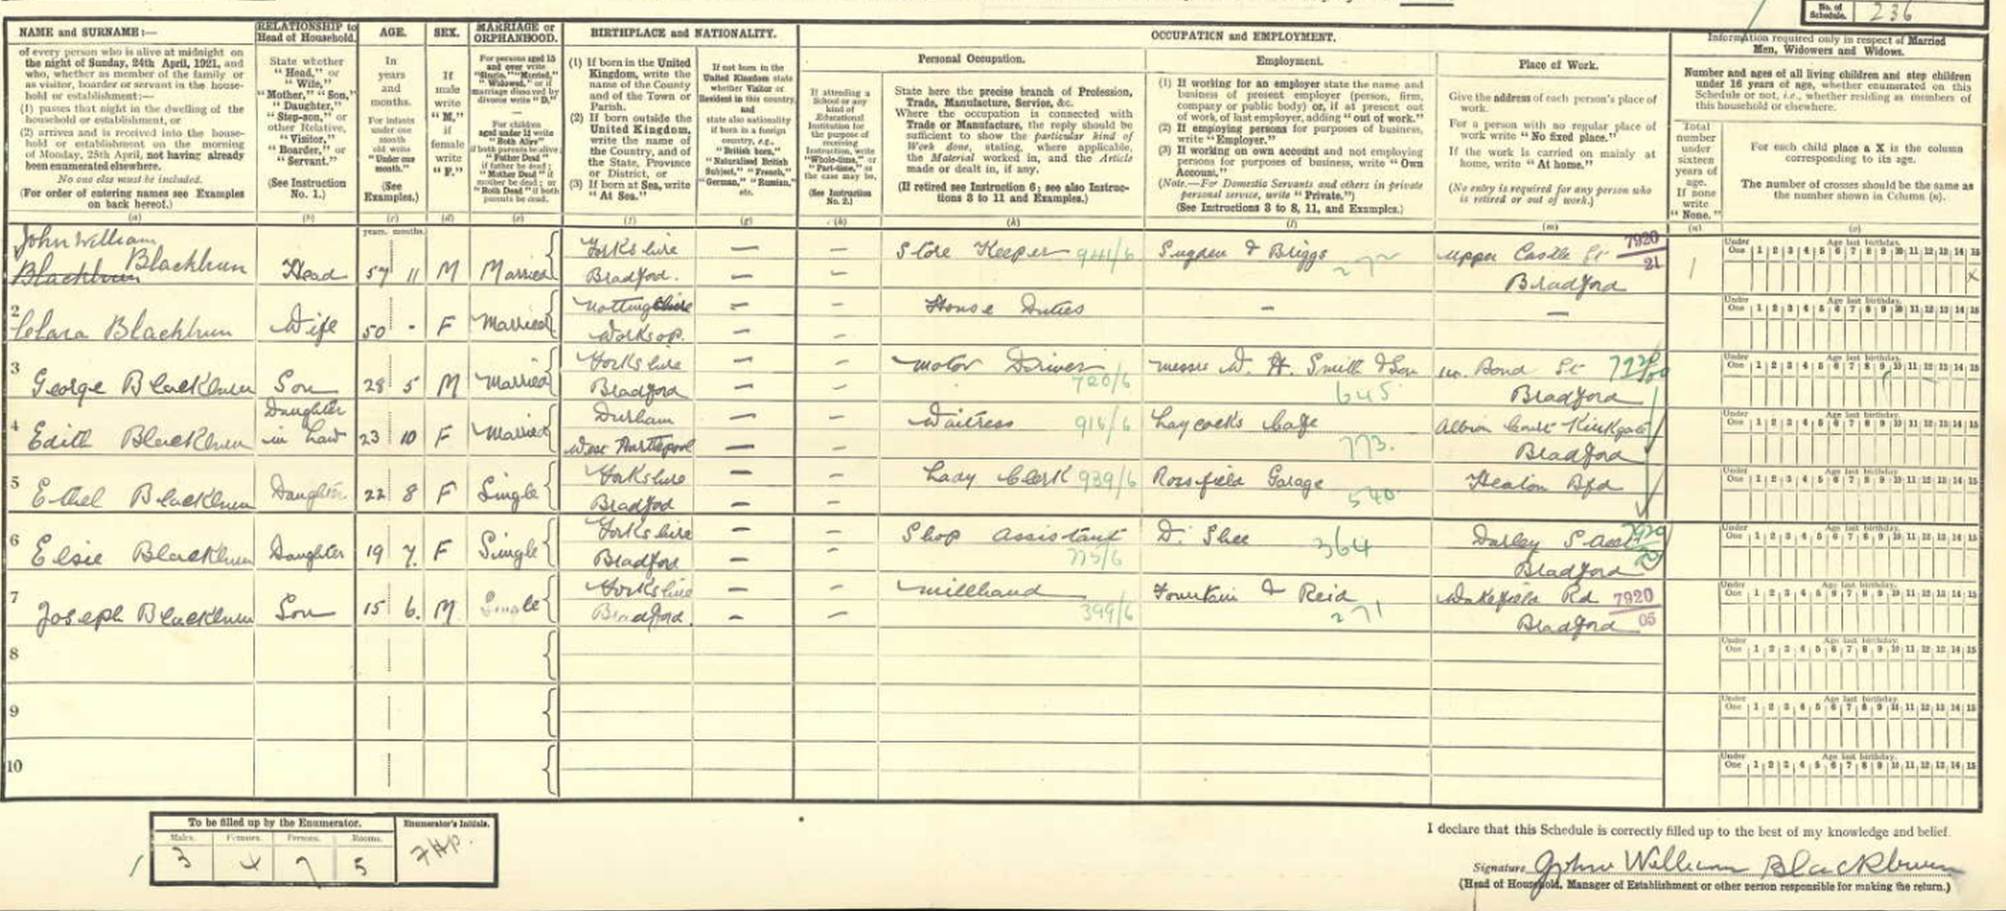 No. of Schedule. 236
NAME and SURNAME:—
of every person who is alive at midnight on
the night of Sunday, 24th April, 1921, and
who, whether as member of the family or
as visitor, boarder or servant in the house-
hold or establishment:—
(1) passes that night in the dwelling of the
household or establishment, or
(2) arrives and is received into the house-
hold or establishment on the morning
of Monday, 25th April, not having already
been enumerated elsewhere.
No one else must be included.
(For order of entering names see Examples
on back hereof.)
(a)
RELATIONSHIP to
Head of Household.
State whether
"Head," or
"Wife,"
"Mother," "Son,"
"Daughter,"
"Step-son," or
other Relative,
"Visitor,"
"Boarder," or
"Servant."
(See Instruction
No. 1.)
(b)
AGE.
In
years
and
months.
For infants
under one
month
old write
"Under one
month."
(See
Examples.)
(c)
SEX.
If
male
write
"M,"
if
female
write
"F."
(d)
MARRIAGE or
ORPHANHOOD.
For persons aged 15
and over write
"Single," "Married,"
"Widowed," or if
marriage dissolved by
divorce write "D."
For children
aged under 15 write
"Both Alive"
if both parents be alive;
"Father Dead"
if father be dead;
"Mother Dead" if
mother be dead; or
"Both Dead" if both
parents be dead.
(e)
BIRTHPLACE and NATIONALITY.
(1) If born in the United
Kingdom, write the
name of the County
and of the Town or
Parish.
(2) If born outside the
United Kingdom,
write the name of
the Country, and of
the State, Province
or District, or
(3) If born at Sea, write
"At Sea."
(f)
If not born in the
United Kingdom state
whether Visitor or
Resident in this country,
and
state also nationality
if born in a foreign
country, e.g.,
"British born,"
"Naturalised British
Subject," "French,"
"German," "Russian,"
etc.
(g)
OCCUPATION and EMPLOYMENT.
If attending a
School or any
kind of
Educational
Institution for
the purpose of
receiving
Instruction, write
"Whole-time," or
"Part-time," as
the case may be.
(See Instruction
No. 2.)
(h)
Personal Occupation.
State here the precise branch of Profession,
Trade, Manufacture, Service, &c.
Where the occupation is connected with
Trade or Manufacture, the reply should be
sufficient to show the particular kind of
Work done, stating, where applicable,
the Material worked in, and the Article
made or dealt in, if any.
(If retired see Instruction 6; see also Instruc-
tions 3 to 11 and Examples.)
(k)
Employment.
(1) If working for an employer state the name and
business of present employer (person, firm,
company or public body) or, if at present out
of work, of last employer, adding "out of work."
(2) If employing persons for purposes of business,
write "Employer."
(3) If working on own account and not employing
persons for purposes of business, write "Own
Account."
(Note.—For Domestic Servants and others in private
personal service, write "Private.")
(See Instructions 3 to 8, 11, and Examples.)
(l)
Place of Work.
Give the address of each person's place of
work.
For a person with no regular place of
work write "No fixed place."
If the work is carried on mainly at
home, write "At home."
(No entry is required for any person who
is retired or out of work.)
(m)
Information required only in respect of Married
Men, Widowers and Widows.
Number and ages of all living children and step children
under 16 years of age, whether enumerated on this
Schedule or not, i.e., whether residing as members of
this household or elsewhere.
Total
number
under
sixteen
years of
age.
If none
write
"None."
(n)
For each child place a X in the column
corresponding to its age.
The number of crosses should be the same as
the number shown in Column (n).
(o)
years. months.
John William
Blackburn Blackburn Head 57 11 M Married Yorkshire Bradford. — — Store Keeper 941/6 Sugden & Briggs 272 Upper Castle St Bradford 7920/21 1 X
2 Clara Blackburn Wife 50 - F Married Nottinghshire Worksop. — — House Duties — —
3 George Blackburn Son 28 5 M Married Yorkshire Bradford — — Motor Driver 720/6 Messrs W. H. Smith & Son 645 Bond St Bradford
4 Edith Blackburn Daughter in Law 23 10 F Married Durham West Hartlepool — — Waitress 916/6 Laycocks Cafe 773. Albion Court Kirkgate Bradford
5 Ethel Blackburn Daughter 22 8 F Single Yorkshire Bradford — — Lady Clerk 939/6 Rossfield Garage 540 Heaton Bfd
6 Elsie Blackburn Daughter 19 7. F Single Yorkshire Bradford — — Shop Assistant 775/6 364 Darley St Bradford
7 Joseph Blackburn Son 15 6. M Single Yorkshire Bradford. — — Millhand 399/6 Fountain & Reid 271 Wakefield Rd Bradford 7920/05
8
9
10
Under One Age last birthday. 1 2 3 4 5 6 7 8 9 10 11 12 13 14 15
Under One Age last birthday. 1 2 3 4 5 6 7 8 9 10 11 12 13 14 15
Under One Age last birthday. 1 2 3 4 5 6 7 8 9 10 11 12 13 14 15
Under One Age last birthday. 1 2 3 4 5 6 7 8 9 10 11 12 13 14 15
Under One Age last birthday. 1 2 3 4 5 6 7 8 9 10 11 12 13 14 15
Under One Age last birthday. 1 2 3 4 5 6 7 8 9 10 11 12 13 14 15
Under One Age last birthday. 1 2 3 4 5 6 7 8 9 10 11 12 13 14 15
Under One Age last birthday. 1 2 3 4 5 6 7 8 9 10 11 12 13 14 15
Under One Age last birthday. 1 2 3 4 5 6 7 8 9 10 11 12 13 14 15
Under One Age last birthday. 1 2 3 4 5 6 7 8 9 10 11 12 13 14 15
To be filled up by the Enumerator.
Males. Females. Persons. Rooms.
3 4 7 5
Enumerator's Initials.
FHP.
I declare that this Schedule is correctly filled up to the best of my knowledge and belief.
Signature John William Blackburn
(Head of Household, Manager of Establishment or other person responsible for making the return.)